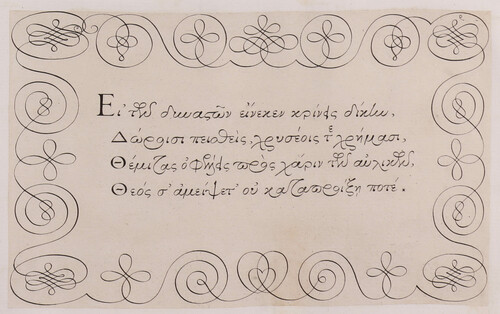 Εἰ τῶν δυναστῶν εἵνεκεν κρίνῃς δίκην,
Δώροισι πεισθεὶς, χρυσέοις τὲ χρήμασι,
Θέμιστας πρὸς χάριν τῶν αὐλικῶν,
Θεός σ' ἀμείψετ' οὐ καταπροίξῃ ποτέ.